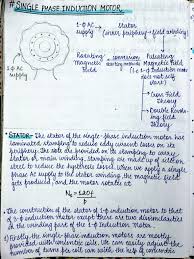 # SINGLE PHASE INDUCTION MOTOR
1-ϕ AC supply → Stator
(inner periphery → field winding)
Rotating Magnetic Field
conversion
starting methods
Pulsating Magnetic Field
(i.e 1-ϕ induction motor does not self start)
1-ϕ AC supply
Cross Field Theory
Double Revolving field Theory
• STATOR - The stator of the single-phase induction motor has
laminated stamping to reduce eddy current losses on its
periphery. The slots are provided on its stamping to carry
stator or main winding. Stampings are made up of silicon
steel to reduce the hysteresis losses. When we apply a single
phase AC supply to the stator winding, the magnetic field
gets produced, and the motor rotates at
Ns = 120f / P
• The construction of the stator of 1-ϕ induction motor to that
of 3-ϕ induction motor except there are two dissimilarities
in the winding part of the 1-ϕ Induction Motor.
1) Firstly, the single-phase induction motors are mostly
provided with concentric coils. We can easily adjust the
number of turns per coil with the help of concentric coils.